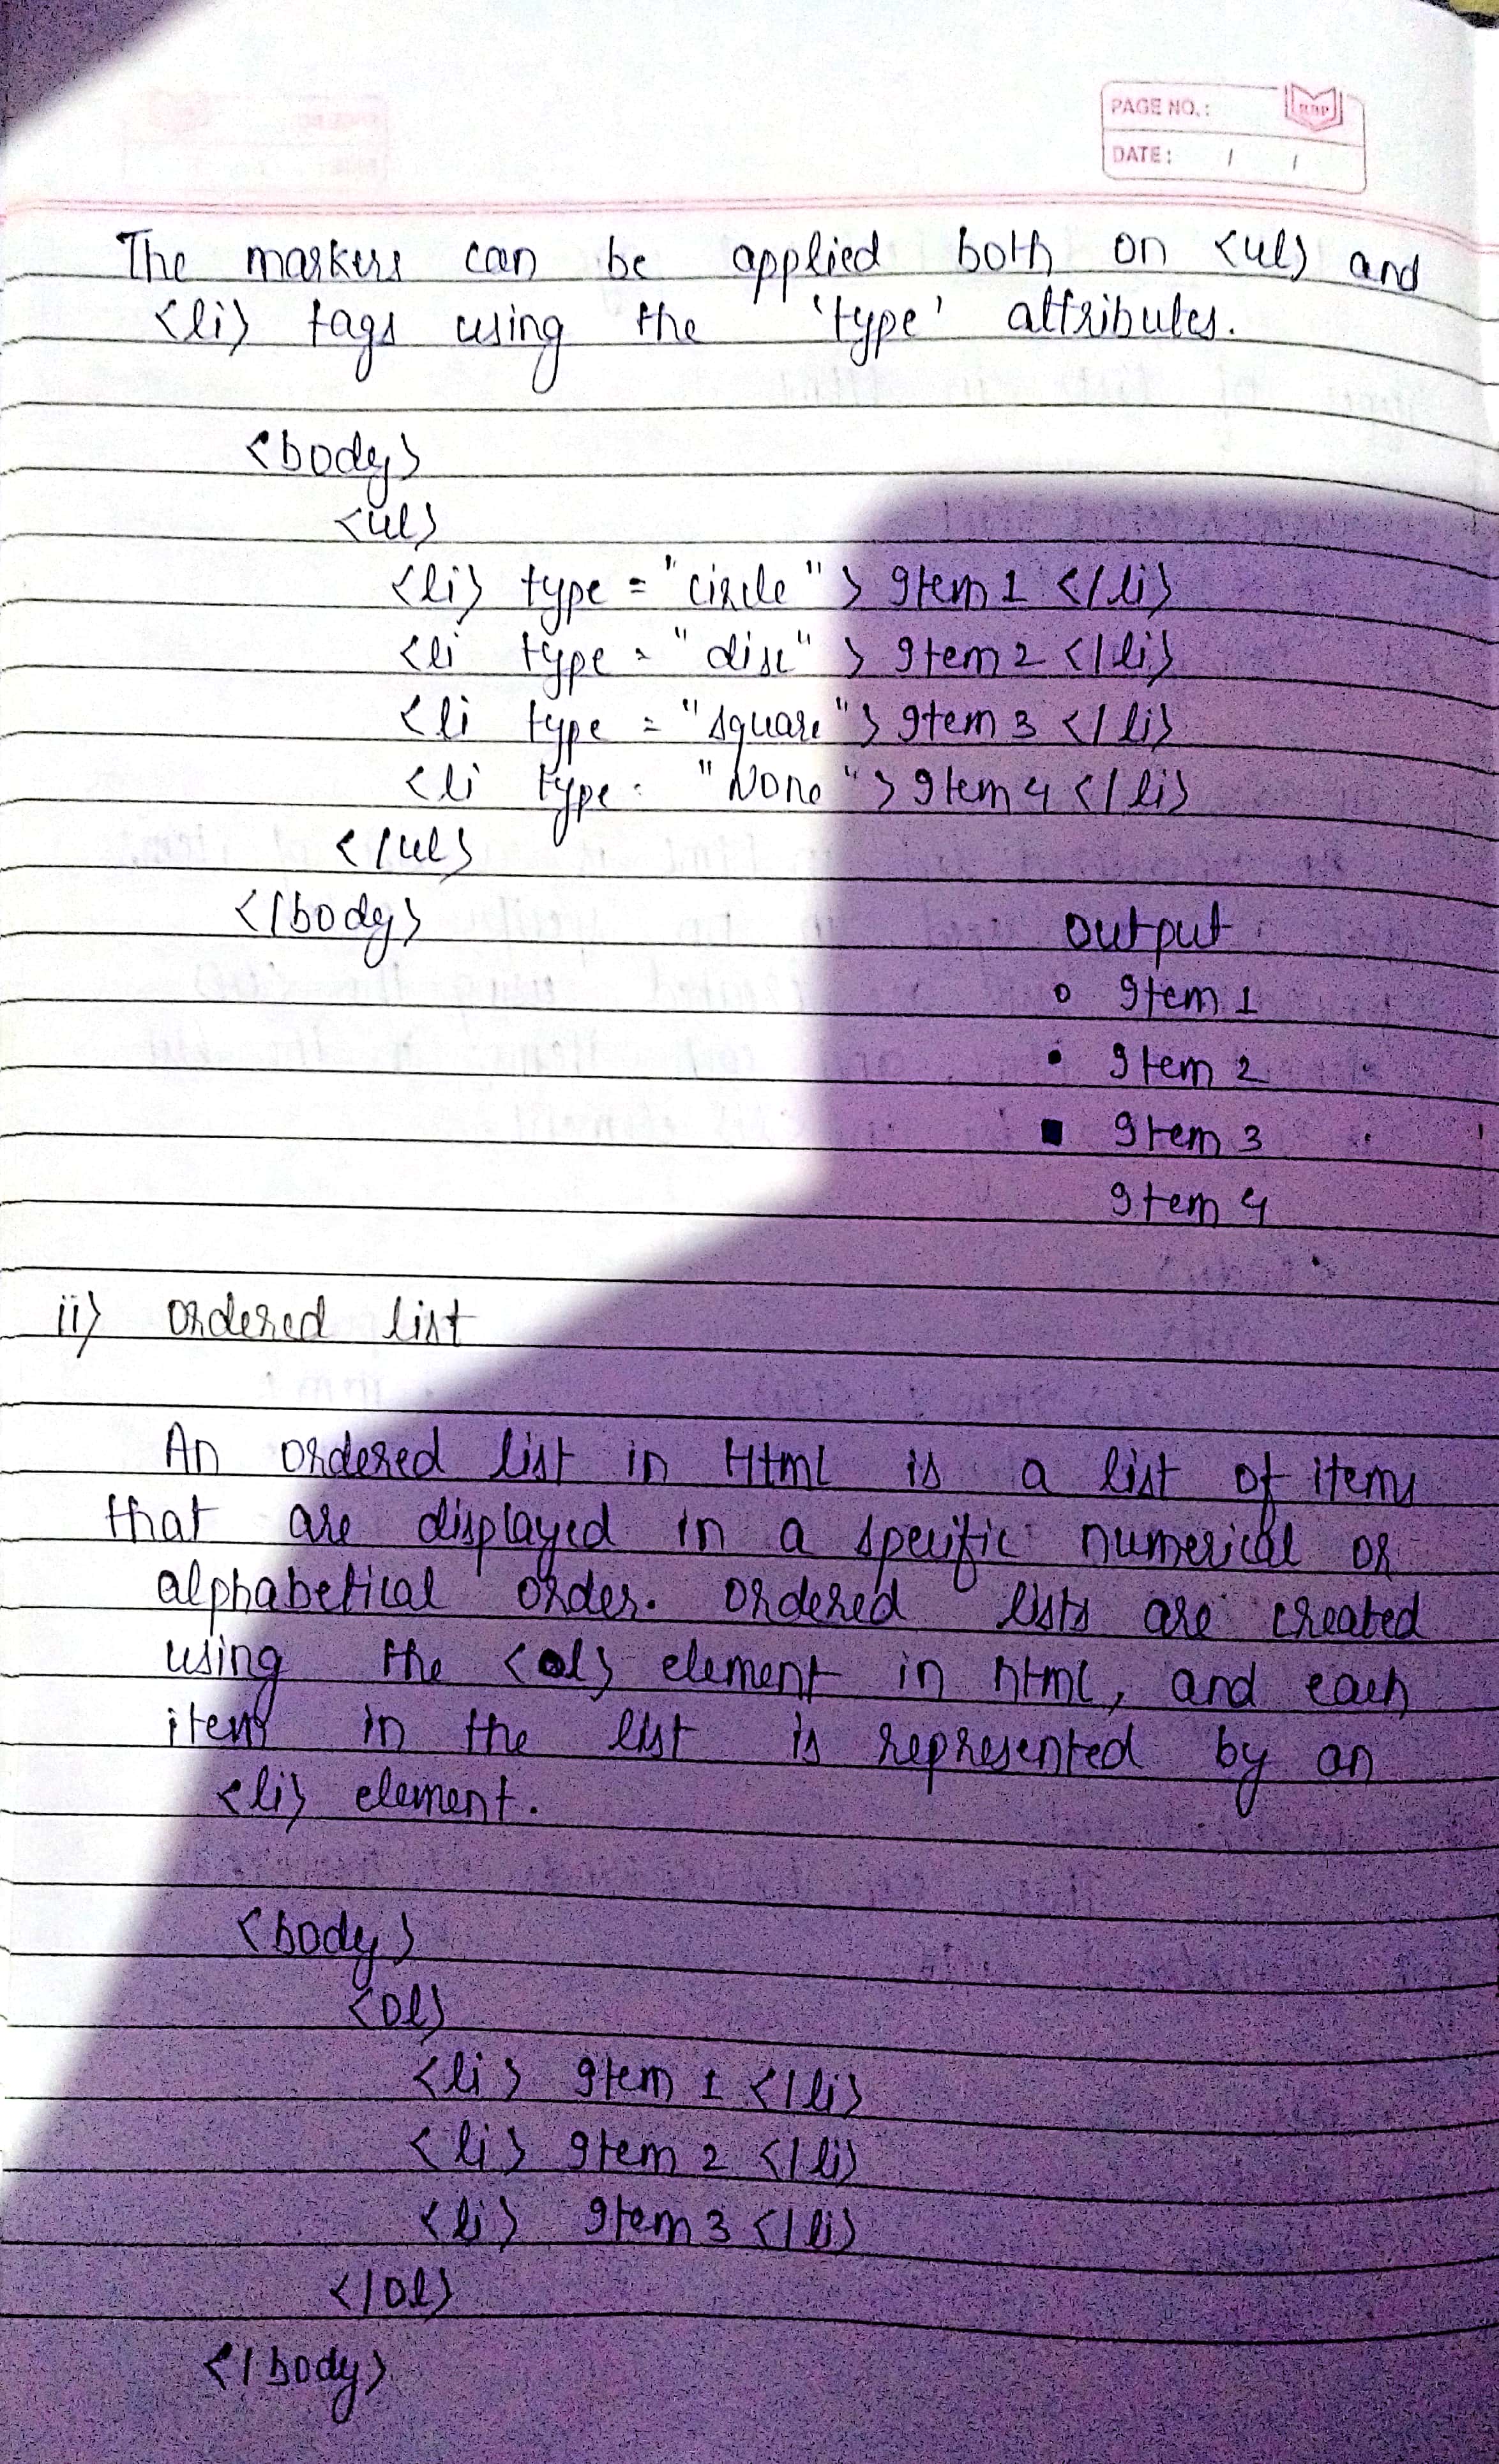 PAGE NO.:
DATE: / /
The markers can be applied both on <ul> and
<li> tags using the 'type' attributes.
<body>
<ul>
<li> type = "circle" > Item 1 </li>
<li type = "disc" > Item 2 </li>
<li type = "square" > Item 3 </li>
<li type = "None" > Item 4 </li>
</ul>
</body>
output
Item 1
Item 2
Item 3
Item 4
ii) ordered list
An ordered list in Html is a list of items
that are displayed in a specific numerical or
alphabetical order. ordered lists are created
using the <ol> element in html, and each
item in the list is represented by an
<li> element.
<body>
<ol>
<li> Item 1 </li>
<li> Item 2 </li>
<li> Item 3 </li>
</ol>
</body>